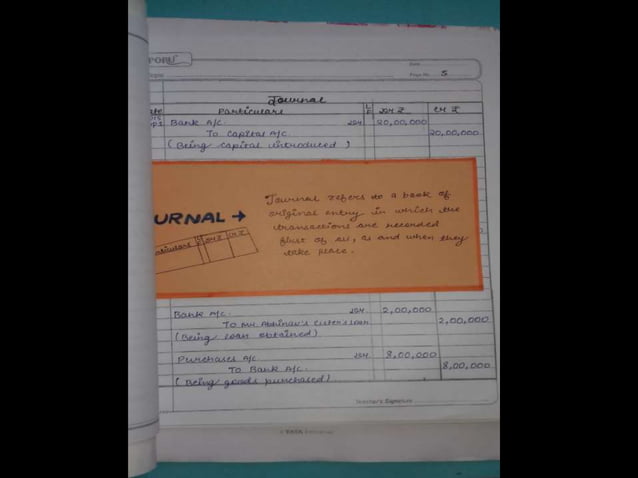 Date
Page No. 5
Journal
Particulars L F Dr ₹ Cr ₹
Bank A/c. Dr. 20,00,000
To Capital A/c. 20,00,000
(Being capital introduced)
Journal refers to a book of
original entry in which the
transactions are recorded
first of all, as and when they
take place.
URNAL →
articulars L F Dr ₹ Cr ₹
Bank A/c. Dr. 2,00,000
To Mr. Abhinav's sister's loan 2,00,000
(Being loan obtained)
Purchases A/c Dr. 8,00,000
To Bank A/c. 8,00,000
(Being goods purchased)
Teacher's Signature